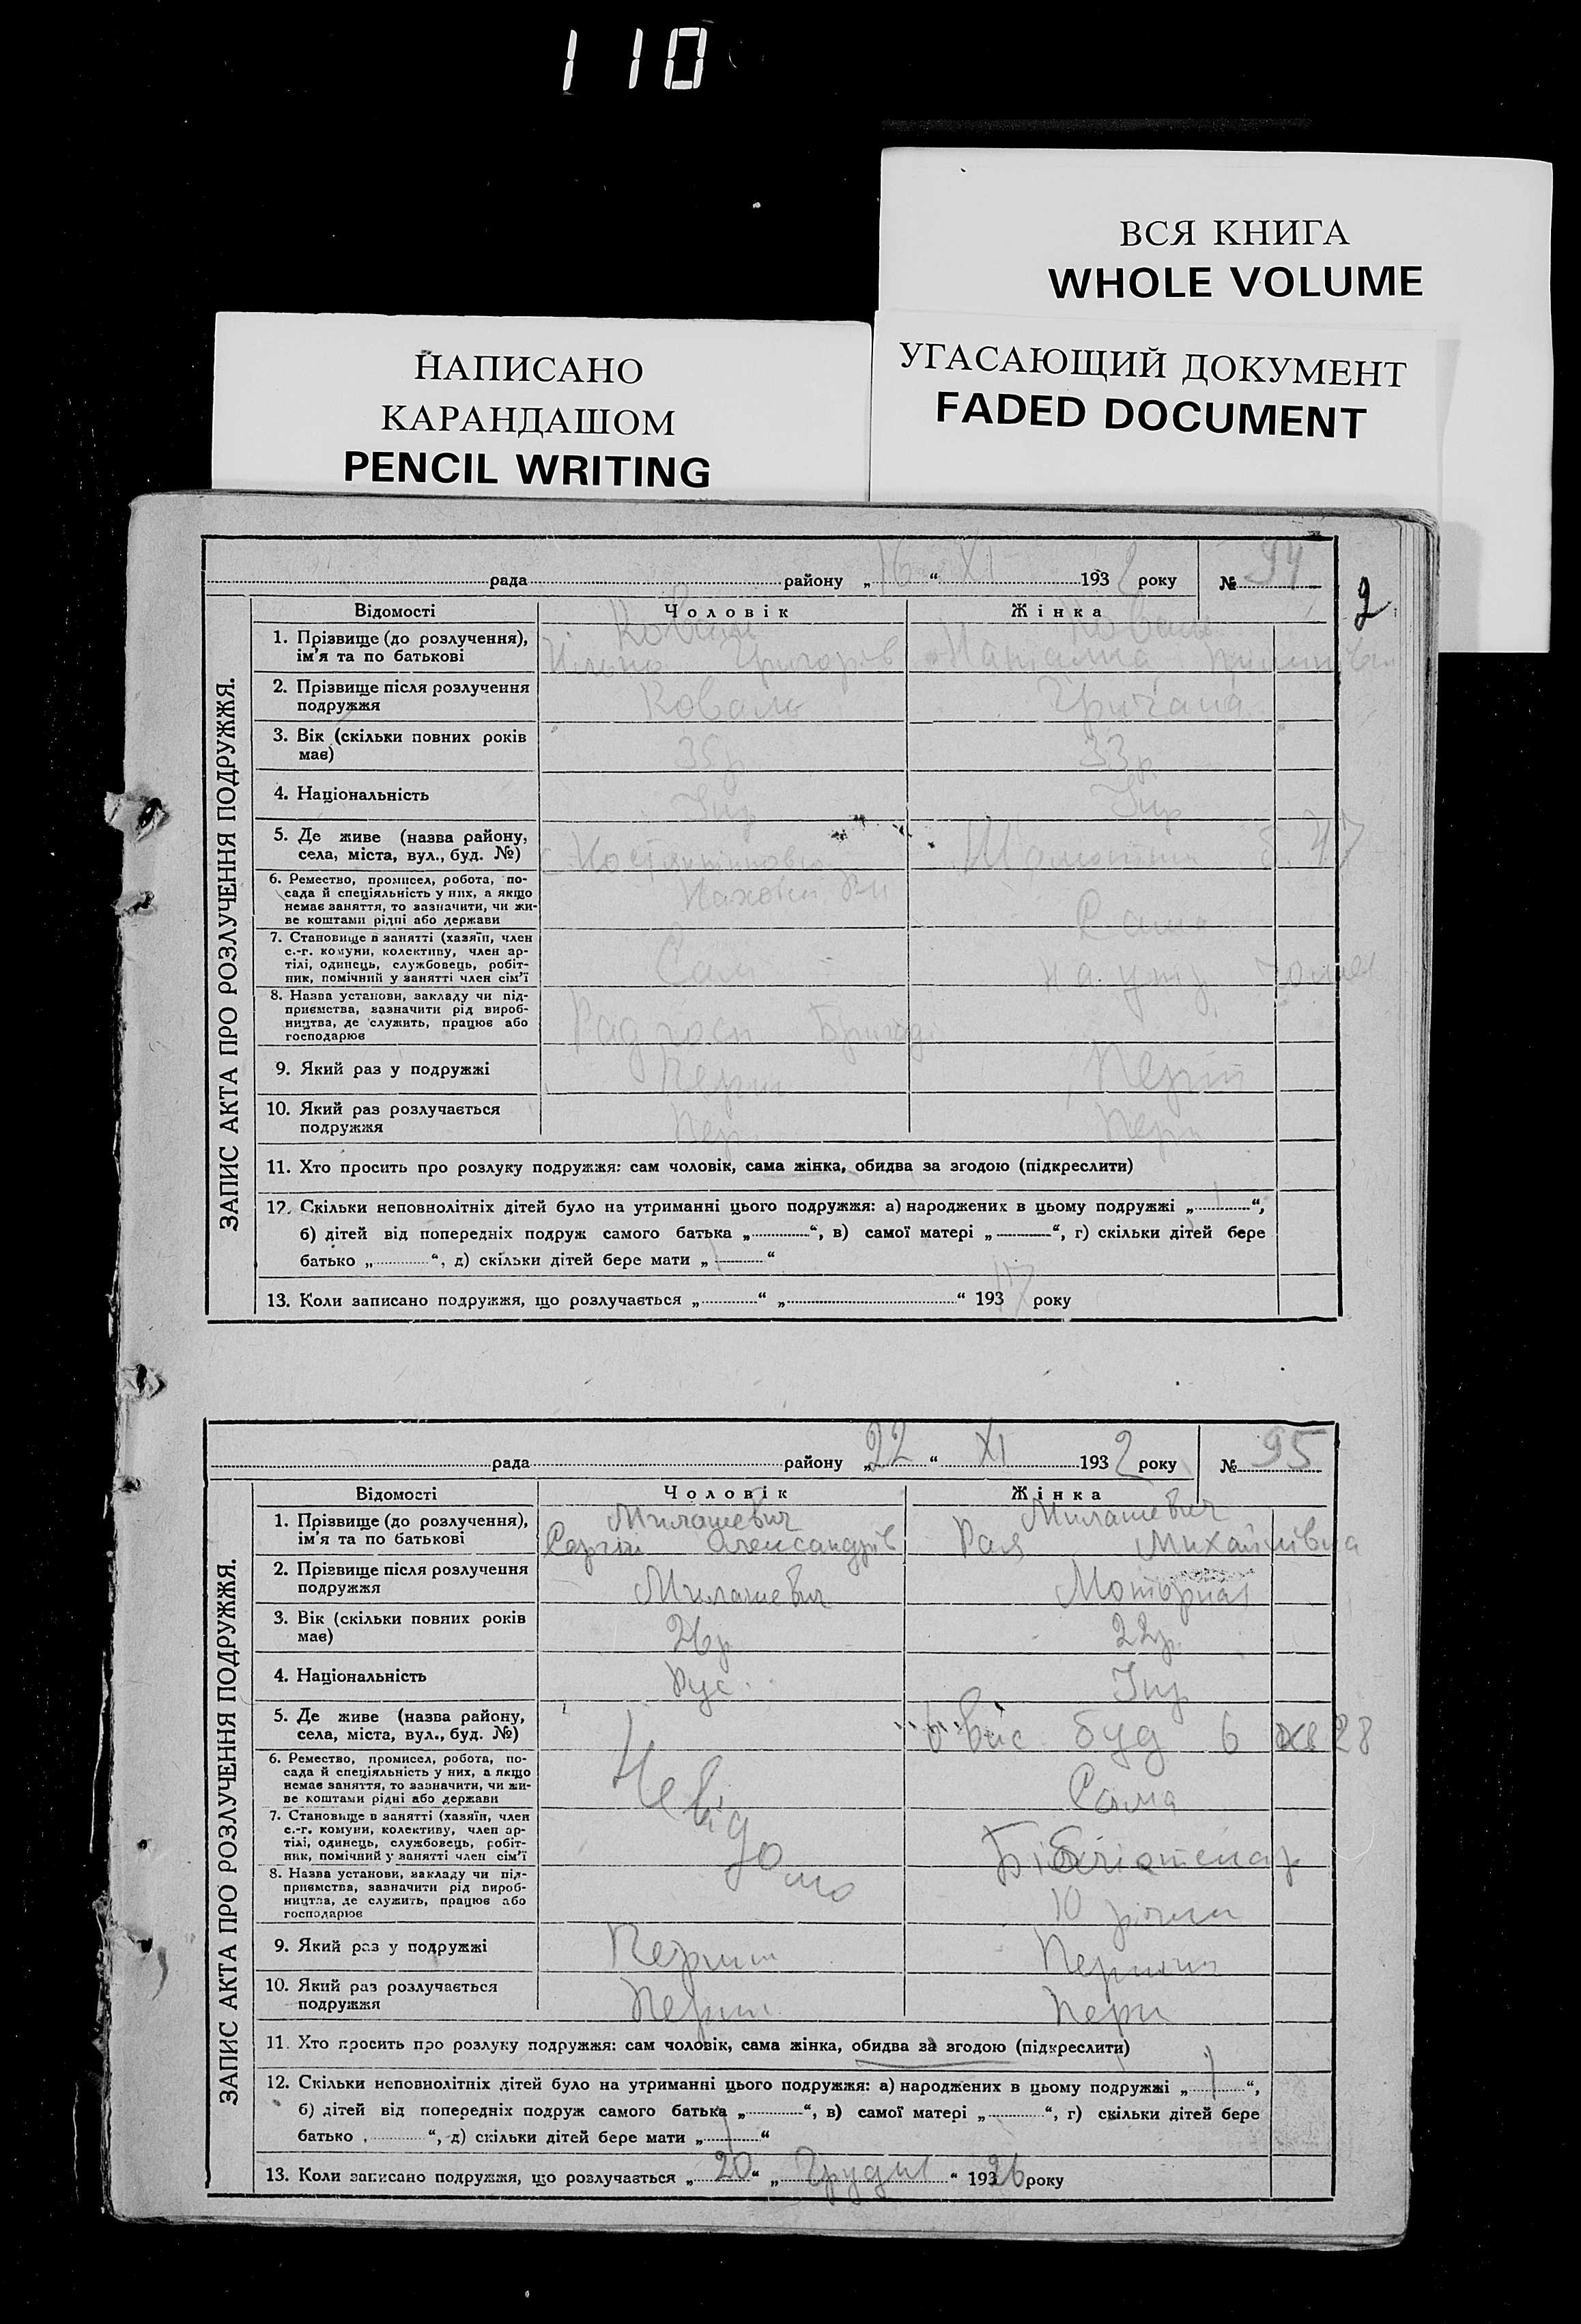 110
ВСЯ КНИГА
WHOLE VOLUME
НАПИСАНО
КАРАНДАШОМ
PENCIL WRITING
УГАСАЮЩИЙ ДОКУМЕНТ
FADED DOCUMENT
2
ЗАПИС АКТА ПРО РОЗЛУЧЕННЯ ПОДРУЖЖЯ.
рада району „16“ XI 1932 року № 94
Відомості Чоловік Жінка
1. Прізвище (до розлучення), Коваль Коваль
ім'я та по батькові
2. Прізвище після розлучення Коваль
подружжя
3. Вік (скільки повних років 35р 33р.
має)
4. Національність Укр Укр
5. Де живе (назва району,
села, міста, вул., буд. №) б. 47
6. Ремество, промисел, робота, по-
сада й спеціяльність у них, а якщо
немає заняття, то зазначити, чи жи-
ве коштами рідні або держави Сама
7. Становище в занятті (хазяїн, член
с.-г. комуни, колективу, член ар- Сам
тілі, одинець, службовець, робіт-
ник, помічний у занятті член сім'ї
8. Назва установи, закладу чи під-
приємства, зазначити рід вироб-
ництва, де служить, працює або Радгосп
господарює
9. Який раз у подружжі Перш Перш
10. Який раз розлучається
подружжя Пер Перш
11. Хто просить про розлуку подружжя: сам чоловік, сама жінка, обидва за згодою (підкреслити)
12. Скільки неповнолітніх дітей було на утриманні цього подружжя: а) народжених в цьому подружжі „1“,
б) дітей від попередніх подруж самого батька „“, в) самої матері „“, г) скільки дітей бере
батько „“, д) скільки дітей бере мати „1“
13. Коли записано подружжя, що розлучається „“ „“ 193 року
ЗАПИС АКТА ПРО РОЗЛУЧЕННЯ ПОДРУЖЖЯ.
рада району „22“ XI 1932 року № 95
Відомості Чоловік Жінка
1. Прізвище (до розлучення), Милашевич Милашевич
ім'я та по батькові Сергій Олександрів Рая Михайлівна
2. Прізвище після розлучення
подружжя Милашевич Моторная
3. Вік (скільки повних років 26р 22р.
має)
4. Національність Рус. Укр
5. Де живе (назва району,
села, міста, вул., буд. №) буд 6 кв 28
6. Ремество, промисел, робота, по- Невідомо
сада й спеціяльність у них, а якщо
немає заняття, то зазначити, чи жи- Сама
ве коштами рідні або держави
7. Становище в занятті (хазяїн, член
с.-г. комуни, колективу, член ар- Бібліотекар
тілі, одинець, службовець, робіт-
ник, помічний у занятті член сім'ї
8. Назва установи, закладу чи під-
приємства, зазначити рід вироб-
ництва, де служить, працює або 10
господарює
9. Який раз у подружжі Перший
10. Який раз розлучається
подружжя Перш Перш
11. Хто просить про розлуку подружжя: сам чоловік, сама жінка, обидва за згодою (підкреслити)
12. Скільки неповнолітніх дітей було на утриманні цього подружжя: а) народжених в цьому подружжі „1“,
б) дітей від попередніх подруж самого батька „“, в) самої матері „“, г) скільки дітей бере
батько „“, д) скільки дітей бере мати „1“
13. Коли записано подружжя, що розлучається „20“ „Грудня“ 1926 року